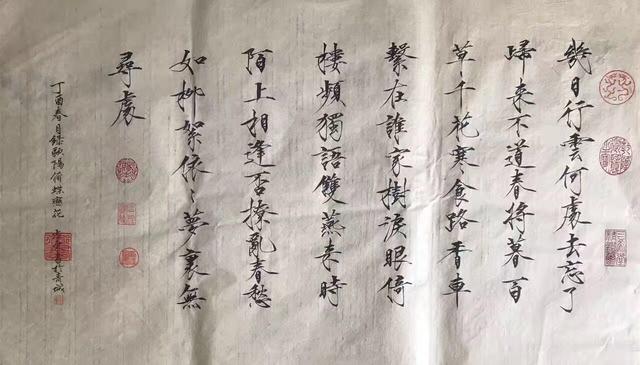 幾日行雲何處去忘了
歸来不道春將暮百
草千花寒食路香車
繫在誰家樹淚眼倚
樓頻獨語雙燕来時
陌上相逢否撩亂春愁
如柳絮依〻夢裏無
尋處
丁酉春月録歐陽脩蝶戀花